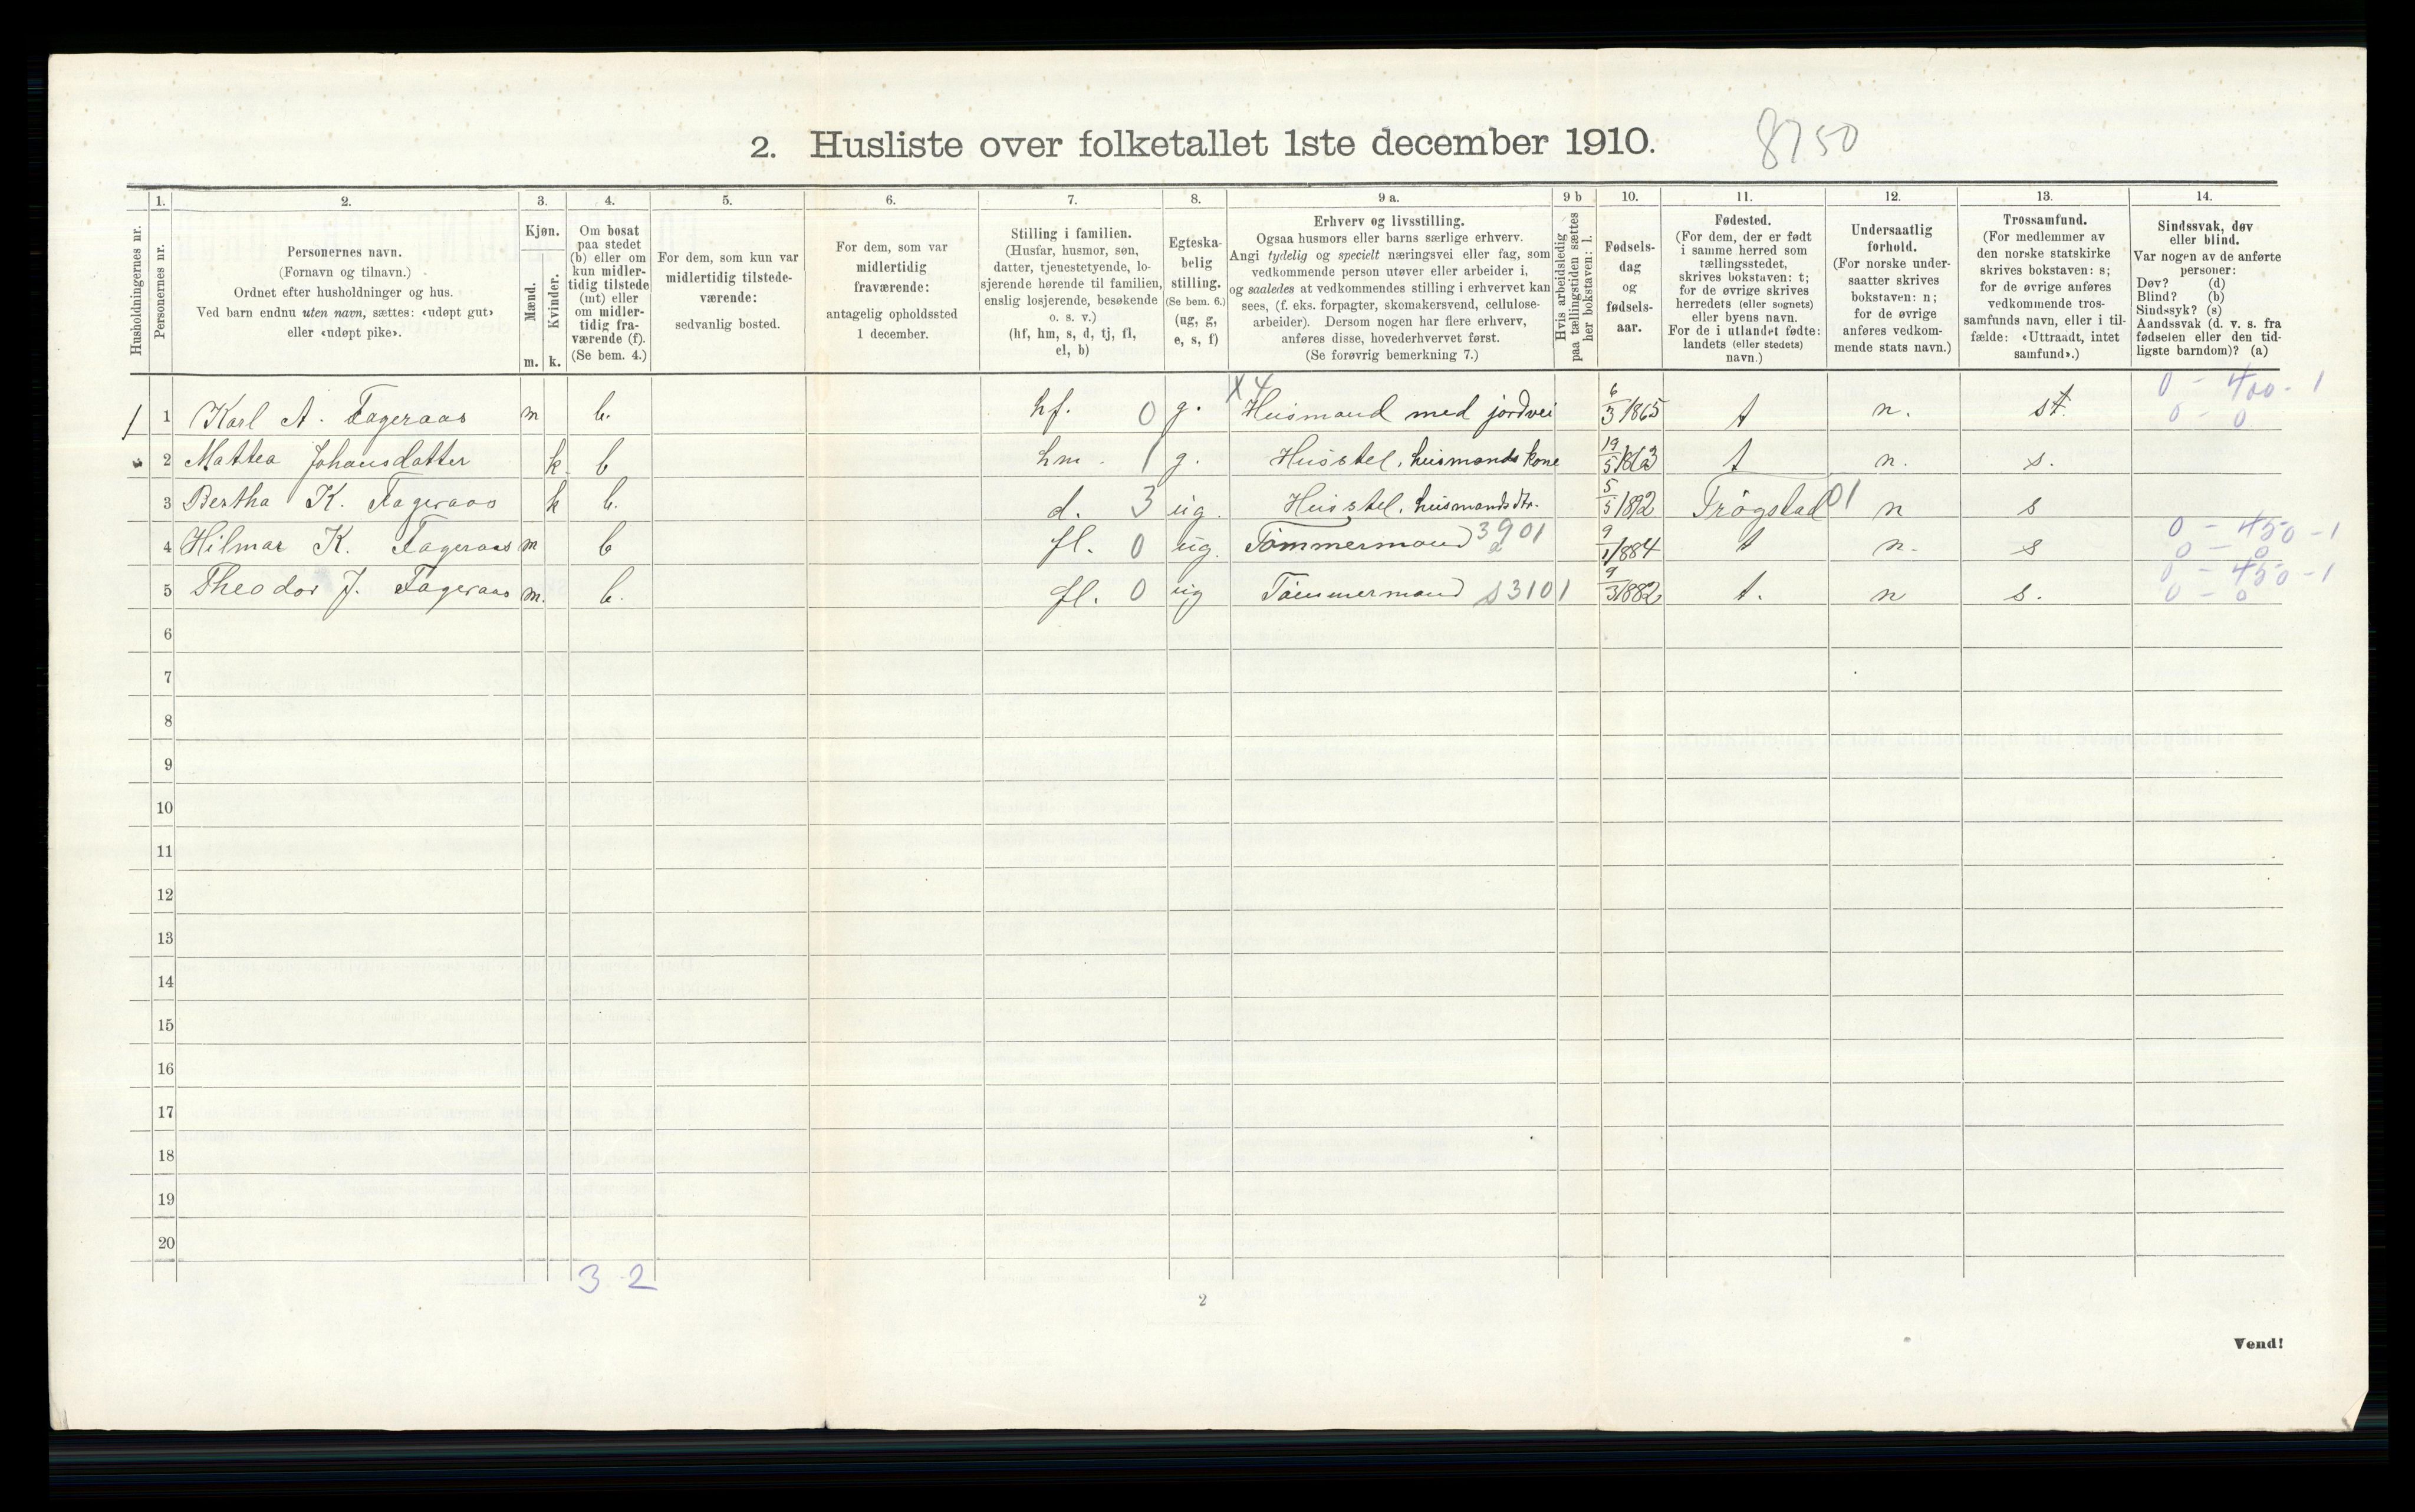 2. Husliste over folketallet 1ste december 1910.
8750
Husholdningernes nr.
1.
Personernes nr.
2.
Personernes navn.
(Fornavn og tilnavn.)
Ordnet efter husholdninger og hus.
Ved barn endnu uten navn, sættes: «udøpt gut»
eller «udøpt pike».
3.
Kjøn.
Mænd.
Kvinder.
m. k.
4.
Om bosat
paa stedet
(b) eller om
kun midler-
tidig tilstede
(mt) eller
om midler-
tidig fra-
værende (f).
(Se bem. 4.)
5.
For dem, som kun var
midlertidig tilstede-
værende:
sedvanlig bosted.
6.
For dem, som var
midlertidig
fraværende:
antagelig opholdssted
1 december.
7.
Stilling i familien.
(Husfar, husmor, søn,
datter, tjenestetyende, lo-
sjerende hørende til familien,
enslig losjerende, besøkende
o. s. v.)
(hf, hm, s, d, tj, fl,
el, b)
8.
Egteska-
belig
stilling.
(Se bem. 6.)
(ug, g,
e, s, f)
9 a.
Erhverv og livsstilling.
Ogsaa husmors eller barns særlige erhverv.
Angi tydelig og specielt næringsvei eller fag, som
vedkommende person utøver eller arbeider i,
og saaledes at vedkommendes stilling i erhvervet kan
sees, (f. eks. forpagter, skomakersvend, cellulose-
arbeider). Dersom nogen har flere erhverv,
anføres disse, hovederhvervet først.
(Se forøvrig bemerkning 7.)
9 b
Hvis arbeidsledig
paa tællingstiden sættes
her bokstaven: l.
10.
Fødsels-
dag
og
fødsels-
aar.
11.
Fødested.
(For dem, der er født
i samme herred som
tællingsstedet,
skrives bokstaven: t;
for de øvrige skrives
herredets (eller sognets)
eller byens navn.
For de i utlandet fødte:
landets (eller stedets)
navn.)
12.
Undersaatlig
forhold.
(For norske under-
saatter skrives
bokstaven: n;
for de øvrige
anføres vedkom-
mende stats navn.)
13.
Trossamfund.
(For medlemmer av
den norske statskirke
skrives bokstaven: s;
for de øvrige anføres
vedkommende tros-
samfunds navn, eller i til-
fælde: «Uttraadt, intet
samfund».)
14.
Sindssvak, døv
eller blind.
Var nogen av de anførte
personer:
Døv? (d)
Blind? (b)
Sindssyk? (s)
Aandssvak (d. v. s. fra
fødselen eller den tid-
ligste barndom)? (a)
1 1 Karl A. Fageraas m b. hf. 0 g. X4 Husmand med jordvei 6/3 1865 t n. st. 0 - 400 - 1
0 - 0
2 Mattea Johansdatter k b hm. 1 g. Husstel, husmands kone 19/5 1863 t n. s.
3 Bertha K. Fageraas k b. d. 3 ug. Husstel, husmandsdtr. 5/5 1892 Trøgstad 01 n s
4 Hilmar K. Fageraas m b fl. 0 ug. Tømmermand 3901 9/1 1884 t n. s 0 - 450 - 1
0 - 0
5 Theodor J. Fageraas m. b. fl. 0 ug Tømmermand S3101 9/3 1882 t. n s. 0 - 450 - 1
0 - 0
6
7
8
9
10
11
12
13
14
15
16
17
18
19
20
3 2
2
Vend!